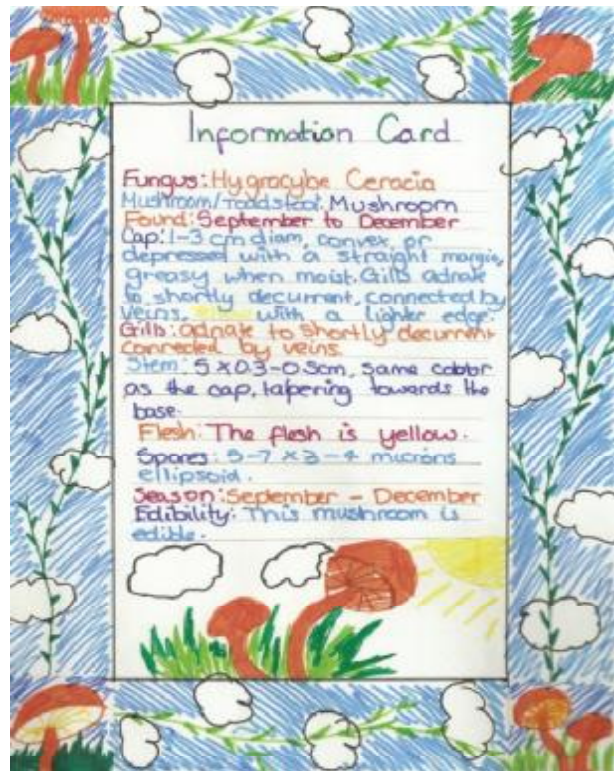 Information Card
Fungus: Hygrocybe Ceracia
Mushroom/Toadstool: Mushroom
Found: September to December
Cap: 1-3 cm diam, convex, or
depressed with a straight margin,
greasy when moist. Gills adnate
to shortly decurrent, connected by
veins, with a lighter edge.
Gills: adnate to shortly decurrent
connected by veins.
Stem: 5 x 0.3-0.5cm, same color
as the cap, tapering towards the
base.
Flesh: The flesh is yellow.
Spores: 5-7 x 3-4 microns
ellipsoid.
Season: September - December
Edibility: This mushroom is
edible.